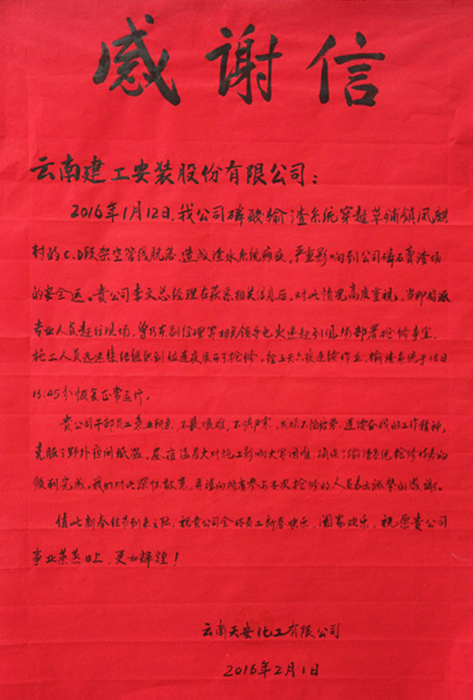 感谢信
云南建工安装股份有限公司：
2016年1月12日，我公司磷酸输渣系统穿越草铺镇凤麒
村的C.D段架空管线脱落，造成渣水系统瘫痪，严重影响到公司磷石膏渣场
的安全运。贵公司李文总经理在获悉相关信息后，对此情况高度重视，当即指派
专业人员赶往现场，曾乃东副经理等相关领导也火速赶到现场部署抢修事宜，
施工人员迅速集结组织到位连夜展开了抢修。经上六夜连续作业，输渣系统于18日
13:45分恢复正常运行。
贵公司干部员工克业，不畏艰难，不惧严寒，不怕疲劳，连续奋战的工作精神，
克服了野外夜间低温，昼夜温差大对施工影响大等困难，确保了输渣系统抢修任务的
顺利完成，我们对此深怀敬意，并谨向所有参与本次抢修的人员表示诚挚的感谢。
值此新春佳节到来之际，祝贵公司全体员工新春快乐，阖家欢乐，祝愿贵公司
事业蒸蒸日上，更加辉煌！
云南天安化工有限公司
2016年2月1日